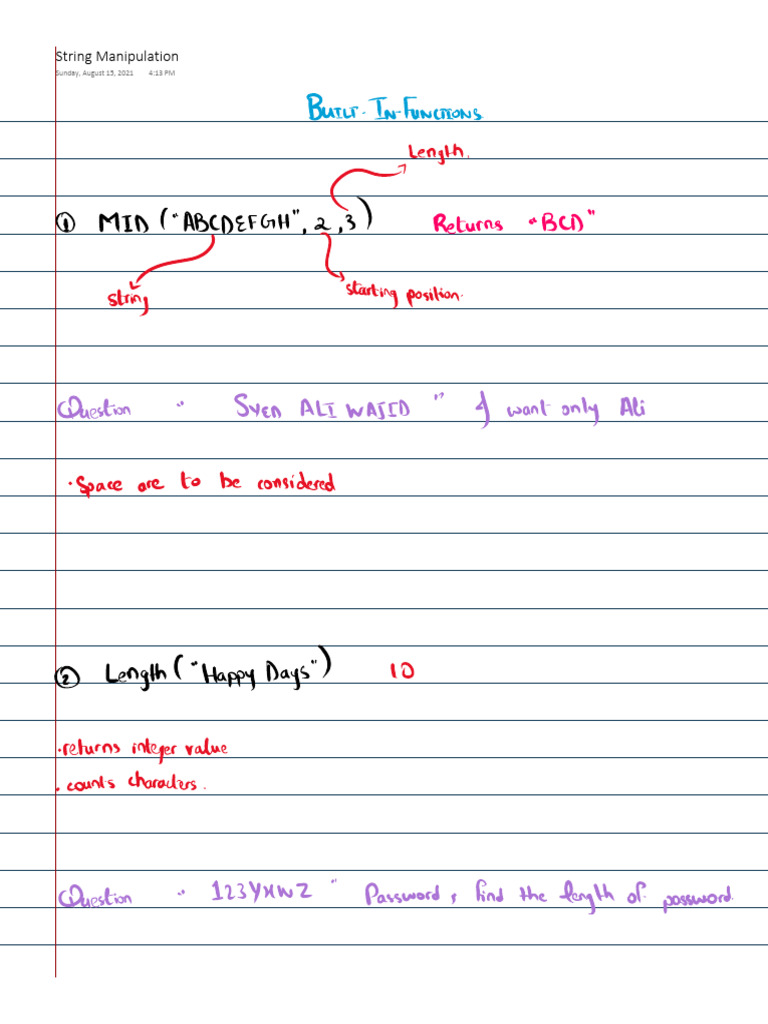 String Manipulation
Sunday, August 15, 2021 4:13 PM
BUILT-IN-FUNCTIONS
Length.
① MID ("ABCDEFGH", 2, 3) Returns "BCD"
string
starting position.
Question " SYED ALI WAJID " I want only Ali
• Space are to be considered
② Length ("Happy Days") 10
• returns integer value
• counts characters.
Question " 123YXWZ " Password, find the length of password.